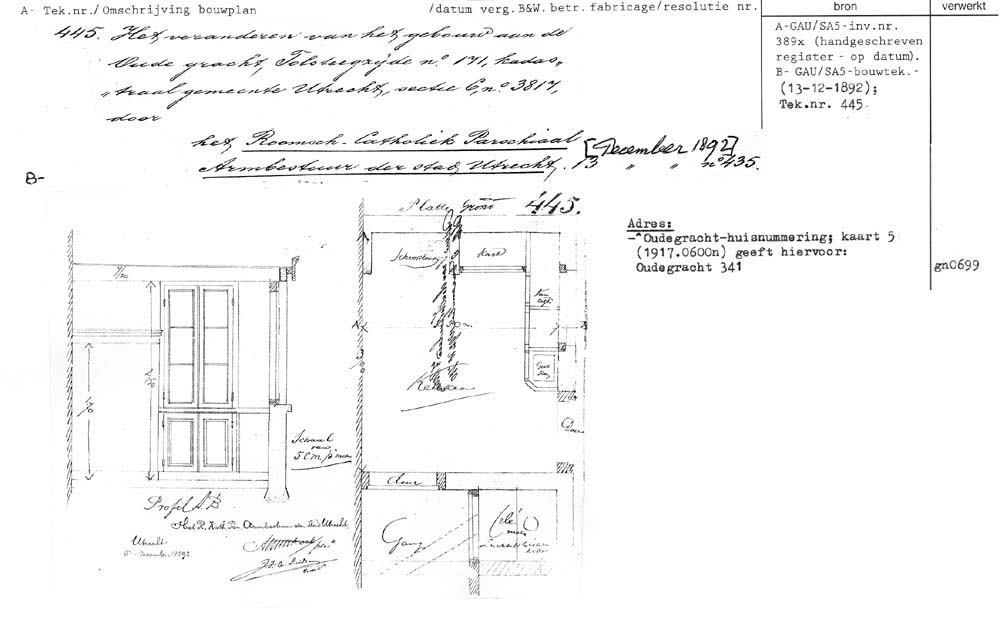 A- Tek.nr./ Omschrijving bouwplan /datum verg. B&W. betr. fabricage/resolutie nr. bron verwerkt
445. Het veranderen van het gebouw aan de
Oude gracht, Tolsteegzijde n.º 171, kadas-
"traal gemeente Utrecht, sectie C, n.º 3817,
door
het Roomsch-Catholiek Parochiaal [December 1892]
Armbestuur der stad Utrecht. 13 " " nº 435.
A-GAU/SA5-inv.nr.
389x (handgeschreven
register - op datum).
B- GAU/SA5-bouwtek.-
(13-12-1892);
Tek.nr. 445.
B-
Adres:
-^Oudegracht-huisnummering; kaart 5
(1917.0600n) geeft hiervoor:
Oudegracht 341 gn0699
Platte Grond 445.
Kast
Keuken
deur
Gang
Schaal
van
5 c.m. p. meter
Profil A.B
Het R. Kath. Par. Armbestuur der Stad Utrecht
Utrecht
December 1892